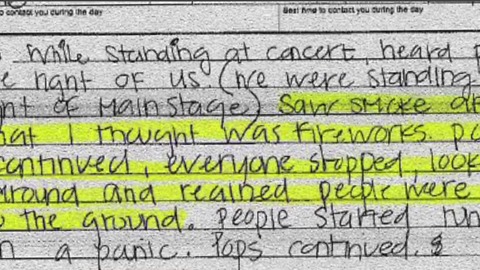 to contact you during the day Best time to contact you during the day
While standing at concert, heard
right of us. (We were standing
of main stage) Saw smoke
I thought was fireworks.
continued, everyone stopped, look
around and realized people were
the ground. People started
a panic. Pops continued.